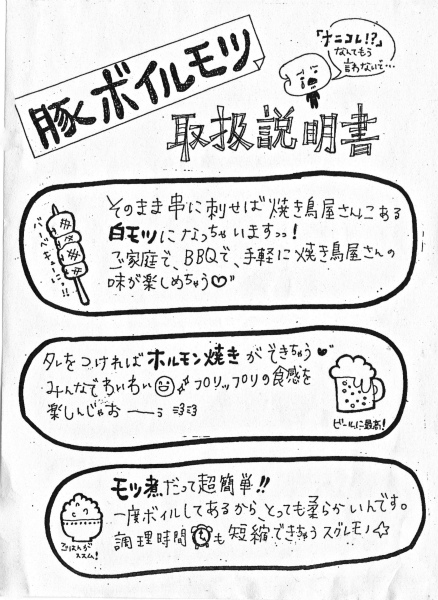 豚ボイルモツ
「ナニコレ!?」
なんてもう
言わないで…
取扱説明書
そのまま串に刺せば焼き鳥屋さんにある
白モツになっちゃいますっっ!
ご家庭で、BBQで、手軽に焼き鳥屋さんの
味が楽しめちゃう♡"
バーベキューにッ!!
タレをつければホルモン焼きができちゃう♥
みんなでわいわい プリップリの食感を
楽しんじゃお――う
ビールに最高!
モツ煮だって超簡単!!
一度ボイルしてあるから、とっても柔らかいんです。
調理時間も短縮できちゃうスグレモノ☆
ごはんが
ススム!